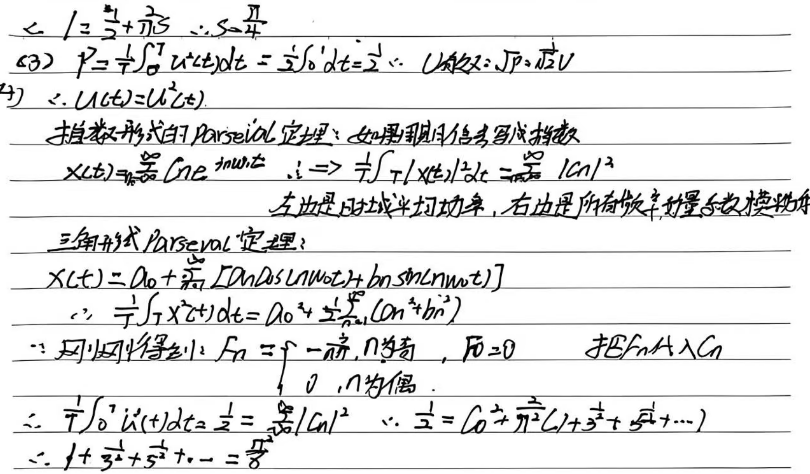 ∴ 1 = 1/2 + 2/π S ∴ S = π/4
(3) P = 1/T ∫₀ᵀ u²(t)dt = 1/2 ∫₀¹ dt = 1/2 ∴ U有效 = √P = √(1/2) V
4) ∵ u(t) = u²(t)
指数形式的 Parseval 定理: 如果周期信号写成指数
x(t) = Σ_{n=-∞}^{∞} Cn e^{jnω₀t} ⇒ 1/T ∫_T |x(t)|² dt = Σ_{n=-∞}^{∞} |Cn|²
左边是时域平均功率, 右边是所有频率分量系数模的平方
三角形式 Parseval 定理:
x(t) = a₀ + Σ_{n=1}^{∞} [an cos(nω₀t) + bn sin(nω₀t)]
∴ 1/T ∫_T x²(t)dt = a₀² + 1/2 Σ_{n=1}^{∞} (an² + bn²)
∵ 刚刚得到: Fn = { , n为奇 , F0 = 0 把Fn代入Cn
0 , n为偶 .
∴ 1/T ∫₀ᵀ u²(t)dt = 1/2 = Σ_{-∞}^{∞} |Cn|² ∴ 1/2 = C₀² + 2/π² (1 + 1/3² + 1/5² + ⋯)
∴ 1 + 1/3² + 1/5² + ⋯ = π²/8